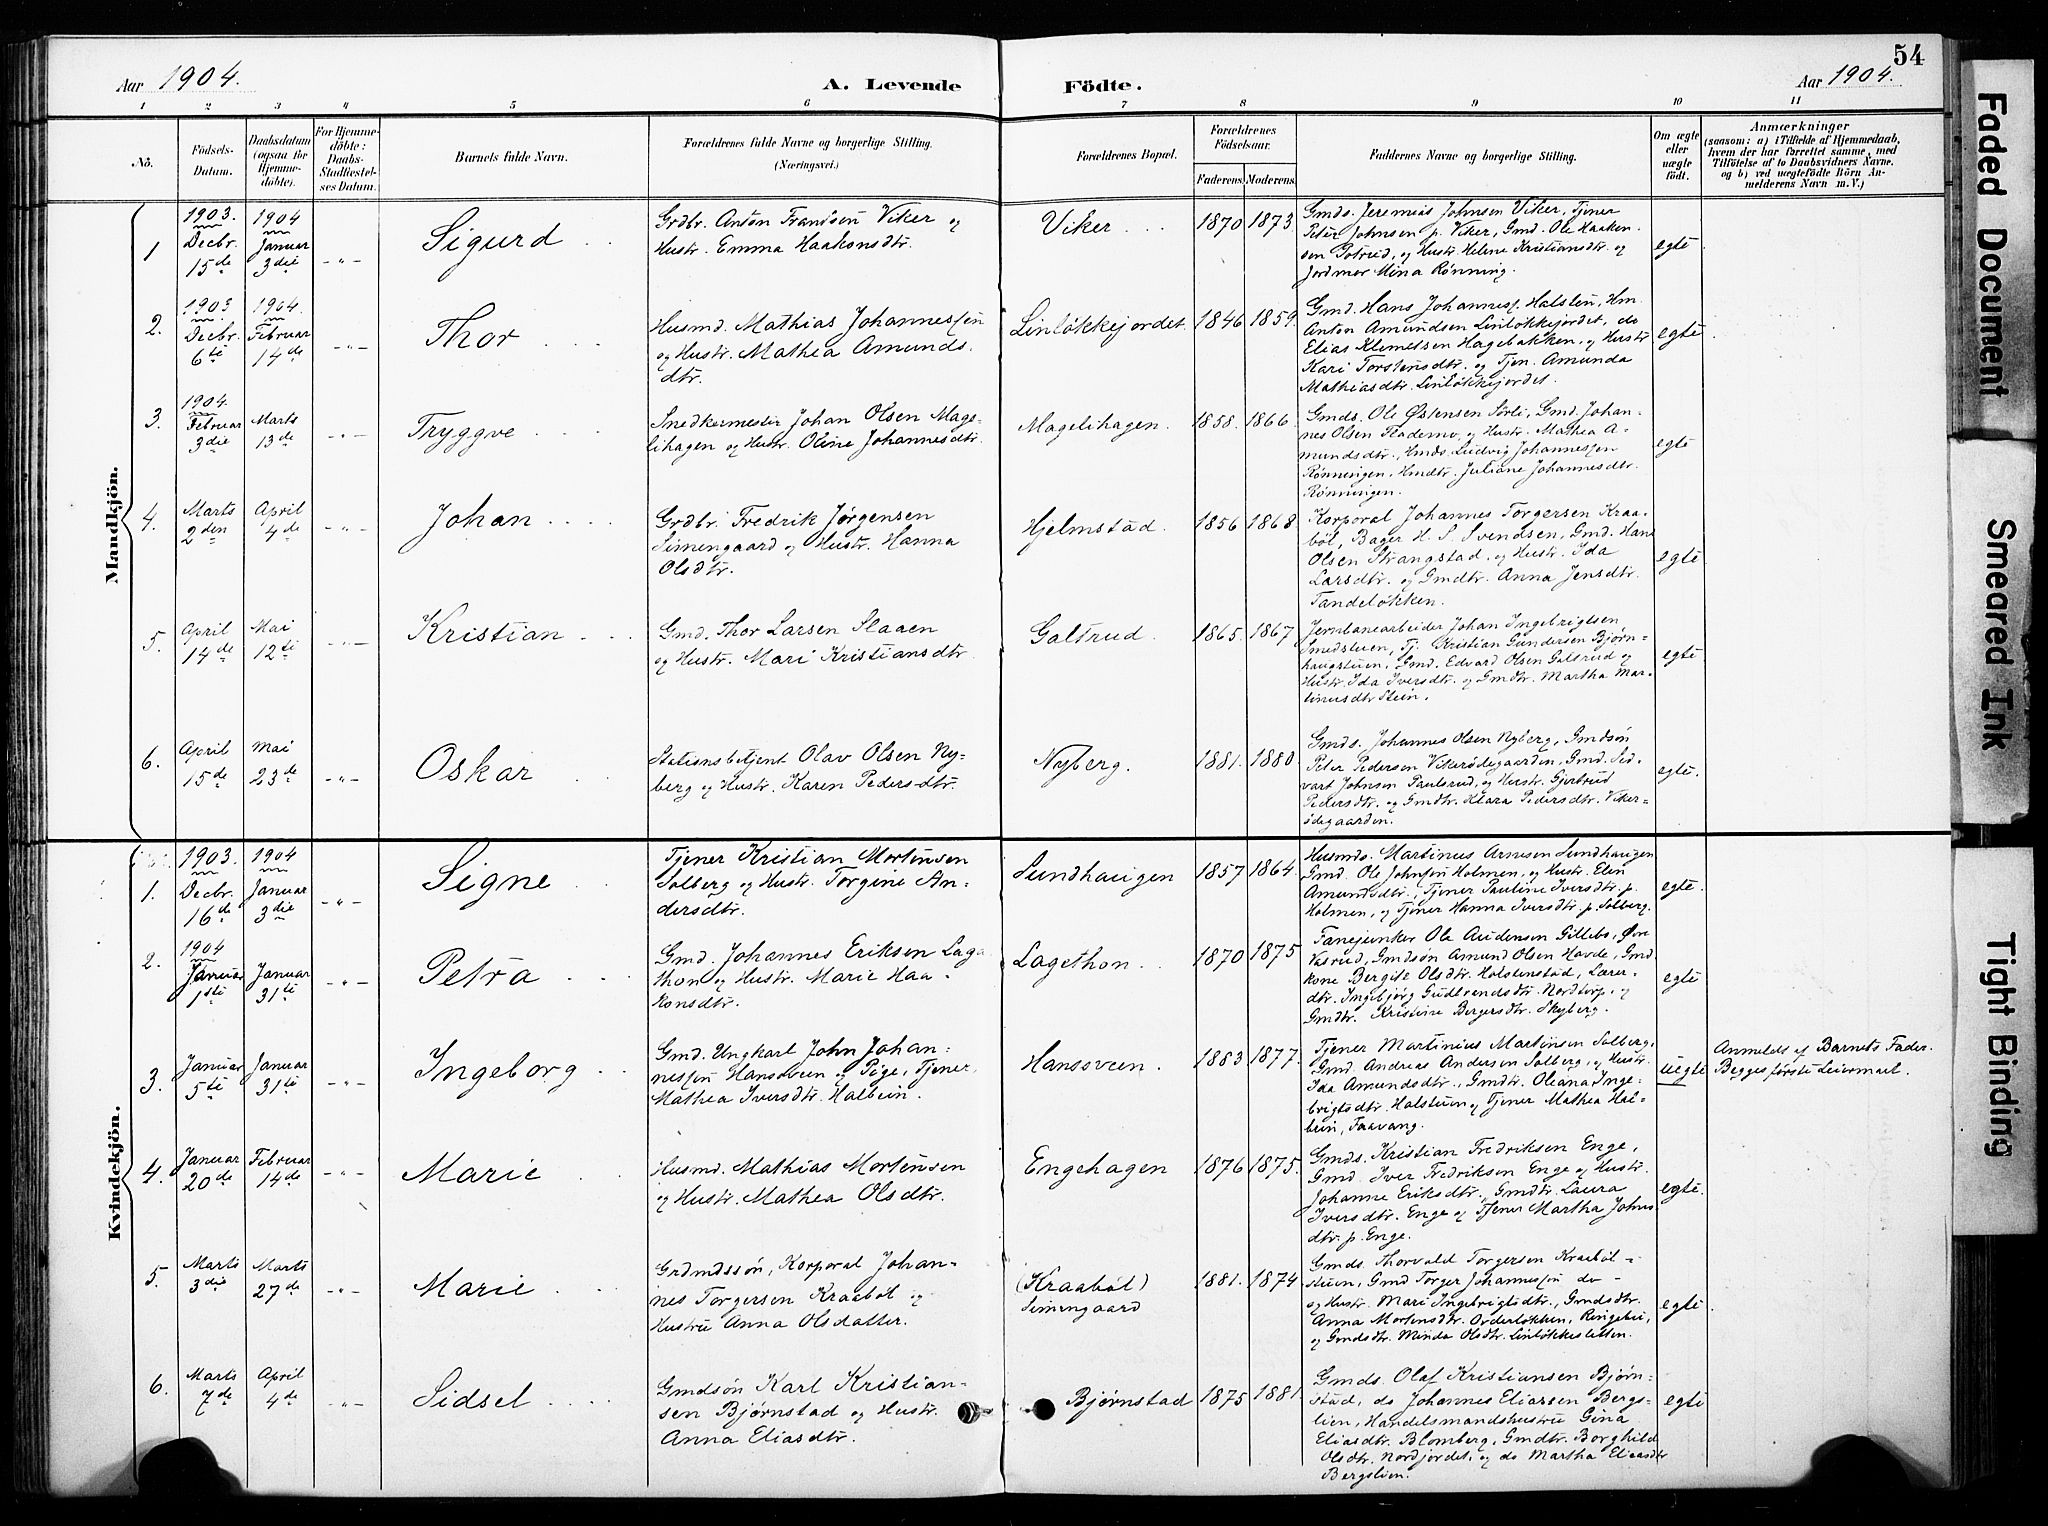 54
Aar 1904.
A. Levende
Födte.
Aar 1904.
1 2 3 4 5 6 7 8 9 10 11
No.
Födsels-
Datum.
Daabsdatum
(ogsaa for
Hjemme-
döbte).
For Hjemme-
döbte:
Daabs-
Stadfæstel-
ses Datum.
Barnets fulde Navn.
Forældrenes fulde Navne og borgerlige Stilling.
(Næringsvei.)
Forældrenes Bopæl.
Forældrenes
Födselsaar.
Faderens. Moderens.
Faddernes Navne og borgerlige Stilling.
Om ægte
eller
uægte
födt.
Anmærkninger
(saasom: a) i Tilfælde af Hjemmedaab,
hvem der har forrettet samme, med
Tilföielse af to Daabsvidners Navne.
og b) ved uægtefödte Börn An-
melderens Navn m. V.)
Mandkjön.
1
1903.
Decbr.
15de
1904
Januar
3die
-"-
Sigurd
Grdbr. Anton Frandsen Viker og
Hustr. Emma Haakonsdtr.
Viker
1870 1873
Gmds. Jeremias Johnsen Viker, Tjener
Peter Johnsen p. Viker, Gmd. Ole Haaken-
sen Gotrud, og Hustr. Helene Kristiansdtr. og
Jordmor Mina Rønning.
egte
2.
1903
Decbr.
6te
1904.
Februar
14de
-"-
Thor
Husmd. Mathias Johannessen
og Hustr. Mathea Amunds-
dtr.
Linløkkejordet.
1846 1859.
Gmd. Hans Johanness. Halsten, Hm.
Anton Amundsen Linløkkejordet, do
Elias Klemetsen Hagebakken, og Hustr.
Kari Torstensdtr. og Tjen. Amunda
Mathiasdtr. Linløkkejordet.
egte
3.
1904.
Februar
3die
Marts
13de
-"-
Tryggve
Snedkermester Johan Olsen Mage-
lihagen og Hustr. Oline Johannesdtr.
Magelihagen.
1858. 1866.
Gmds. Ole Østensen Sørli, Gmd. Johan-
nes Olsen Flademo, og Hustr. Mathea A-
mundsdtr., Hmds. Ludvig Johannessen
Rønningen, Hmdtr. Juliane Johannesdtr.
Rønningen.
egte
4.
Marts
2den
April
4de
-"-
Johan
Grdbr. Fredrik Jørgensen
Simengaard og Hustr. Hanna
Olsdtr.
Hjelmstad.
1856 1868
Korporal Johannes Torgersen Kraa-
bøl, Bager H. S. Svendsen, Gmd. Hans
Olsen Strangstad, og Hustr. Ida
Larsdtr. og Gmdtr. Anna Jensdtr.
Tandeløkken.
egte
5.
April
14de
Mai
12te
-"-
Kristian
Gmd. Thor Larsen Slaaen
og Hustr. Mari Kristiansdtr.
Galtrud.
1865. 1867
Jernbanearbeider Johan Ingebrigtsen
Smedstuen, Tj. Kristian Gundersen Bjørn-
haugstuen, Gmd. Edvard Olsen Galtrud og
Hustr. Ida Iversdtr. og Gmdtr. Martha Mar-
tinusdtr. Steen.
egte
6.
April
15de
Mai
23de
-"-
Oskar
Stationsbetjent Olav Olsen Ny-
berg og Hustr. Karen Pedersdtr.
Nyberg.
1881. 1880.
Gmds. Johannes Olsen Nyberg, Gmdsøn
Peter Pedersen Vikerødegaarden, Gmd. Sid-
vart Johnsen Paulsrud, og Hustr. Gjertrud
Pedersdtr. og Gmdtr. Klara Pedersdtr. Viker-
ødegaarden.
egte.
Kvindekjön.
1.
1903.
Decbr.
16de
1904
Januar
3die
-"-
Signe
Tjener Kristian Mortensen
Solberg og Hustr. Torgine An-
dersdtr.
Sundhaugen
1857 1864.
Husmds. Martinus Arnesen Sundhaugen
Gmd. Ole Johnsen Holmen, og Hustr. Elen
Amundsdtr., Tjener Pauline Iversdtr. p.
Holmen, og Tjener Hanna Iversdtr. p. Solberg.
egte.
2.
1904
Januar
1ste
Januar
31te
-"-
Petra
Gmd. Johannes Eriksen Laga-
thon og Hustr. Marie Haa-
konsdtr.
Lagethon.
1870 1875
Fanejunker Ole Audensen Gillebo, Øvre
Vasrud, Gmdsøn Amund Olsen Havde, Gmd-
kone Bergite Olsdtr. Holstenstad, Lærer-
dtr. Ingebjørg Gudbrandsdtr. Nordtorp, og
Gmdtr. Kristine Bergersdtr. Skyberg.
egte
3.
Januar
5te
Januar
31te
-"-
Ingeborg
Gmd. Ungkarl John Johan-
nessen Hanssveen og Pige, Tjener
Mathea Iversdtr. Halbein.
Hanssveen.
1883 1877.
Tjener Martinius Martinsen Solberg,
Gmd. Andreas Andersen Solberg, og Hustr.
Ida Amundsdtr., Gmdtr. Oleana Inge-
brigtsdtr. Halstuen og Tjener Mathea Hal-
bein, Faavang.
uegte
Anmeldt af Barnets Fader.
Begges første Leiermaal.
4.
Januar
20de
Februar
14de
-"-
Marie
Husmd. Mathias Mortensen
og Hustr. Mathea Olsdtr.
Engehagen
1876 1875.
Gmds. Kristian Fredriksen Enge,
Gmd. Iver Fredriksen Enge og Hustr.
Johanne Eriksdtr., Gmdtr. Laura
Iversdtr. Enge og Tjener Martha Johns-
dtr. p. Enge.
egte.
5.
Marts
3die
Marts
27de
-"-
Marie
Grdmdssøn, Korporal Johan-
nes Torgersen Kraabøl og
Hustru Anna Olsdatter.
(Kraabøl)
Simengaard
1881. 1874
Gmds. Thorvald Torgersen Kraabøl-
stuen, Gmd Torger Johannessen do -
og Hustr. Mari Ingebrigtsdtr., Gmdsdtr.
Anna Mortensdtr. Orderløkken, Ringebu,
og Gmdsdtr. Minda Olsdtr. Linløkkesletten.
egte.
6.
Marts
7de
April
4de
-"-
Sidsel
Gmdsøn Karl Kristian-
sen Bjørnstad og Hustr.
Anna Eliasdtr.
Bjørnstad
1875 1881.
Gmds. Olaf Kristiansen Bjørn-
stad, do Johannes Eliassen Bergs-
lien, Handelsmandshustru Gina
Eliasdtr. Blomberg, Gmdtr. Borghild
Olsdtr. Nordjordet, og do Martha Eliasdtr.
Bergslien.
egte
Faded Document
Smeared Ink
Tight Binding